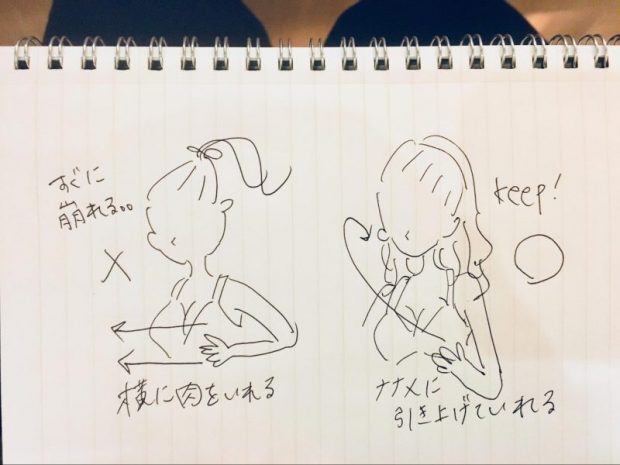 すぐに
崩れる。。
×
横に肉をいれる
keep!
○
ナナメに
引き上げていれる